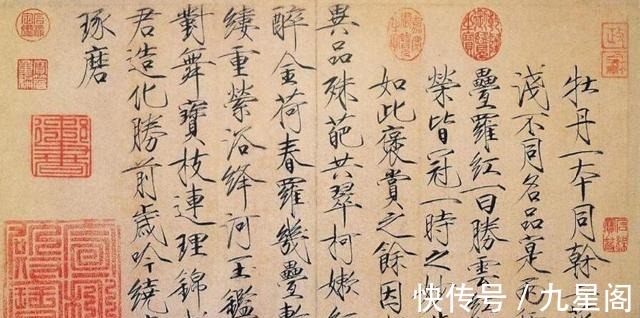 牡丹一本同幹
淺不同名品實
疊羅紅一曰勝雲
榮皆冠一時之
如此褒賞之餘因
異品殊葩共翠柯嫩紅
醉金荷春羅幾疊敷
縷重縈浴絳河玉鑑
對舞寶枝連理錦
君造化勝前歲吟繞
琢磨
快传号 / 九星阁